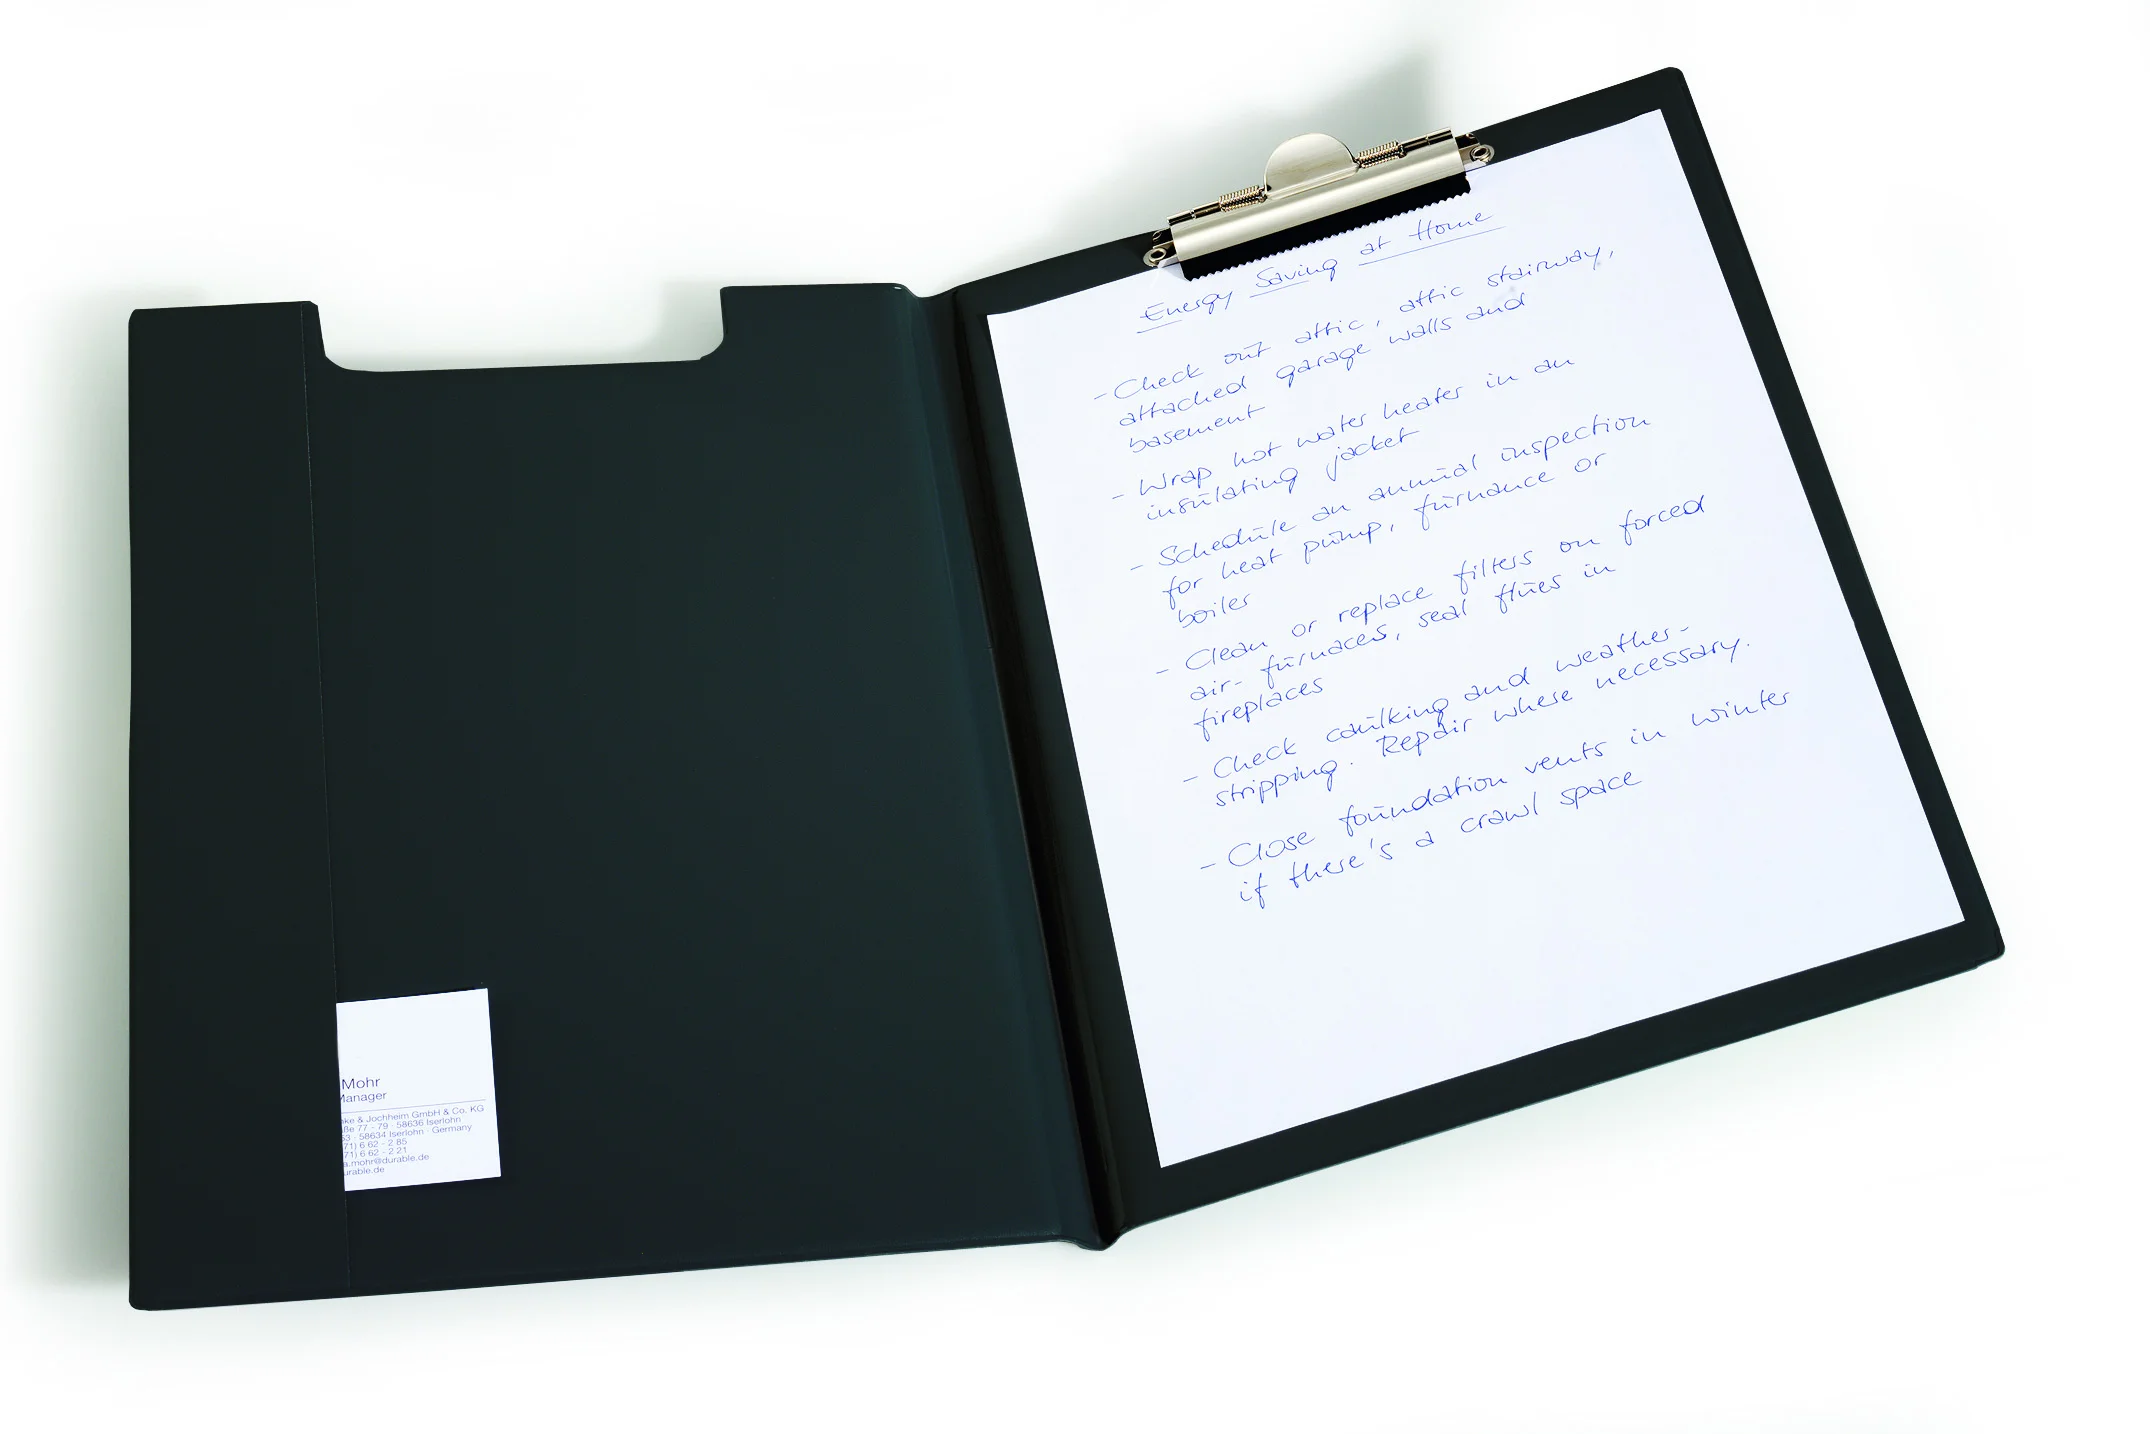 Energy Saving at Home
- Check out attic, attic stairway,
attached garage walls and
basement
- Wrap hot water heater in an
insulating jacket
- Schedule an annual inspection
for heat pump, furnance or
boiler
- Clean or replace filters on forced
air-furnaces, seal flues in
fireplaces
- Check caulking and weather-
stripping. Repair where necessary.
- Close foundation vents in winter
if there's a crawl space
Mohr
Manager
ke & Jochheim GmbH & Co. KG
ße 77 - 79 · 58636 Iserlohn
63 · 58634 Iserlohn · Germany
71) 6 62 - 2 85
71) 6 62 - 2 21
a.mohr@durable.de
urable.de